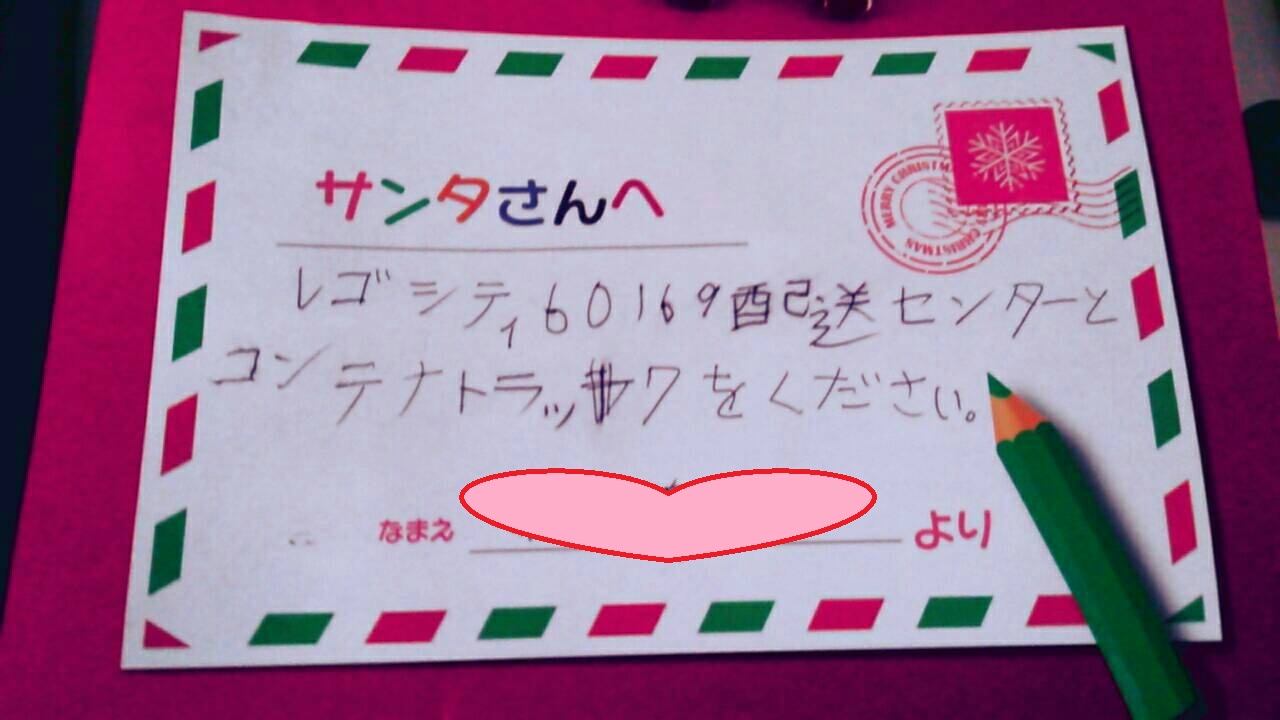 サンタさんへ
MERRY CHRISTMAS
MERRY CHRISTMAS
レゴシティ60169配送センターと
コンテナトラックをください。
なまえ より